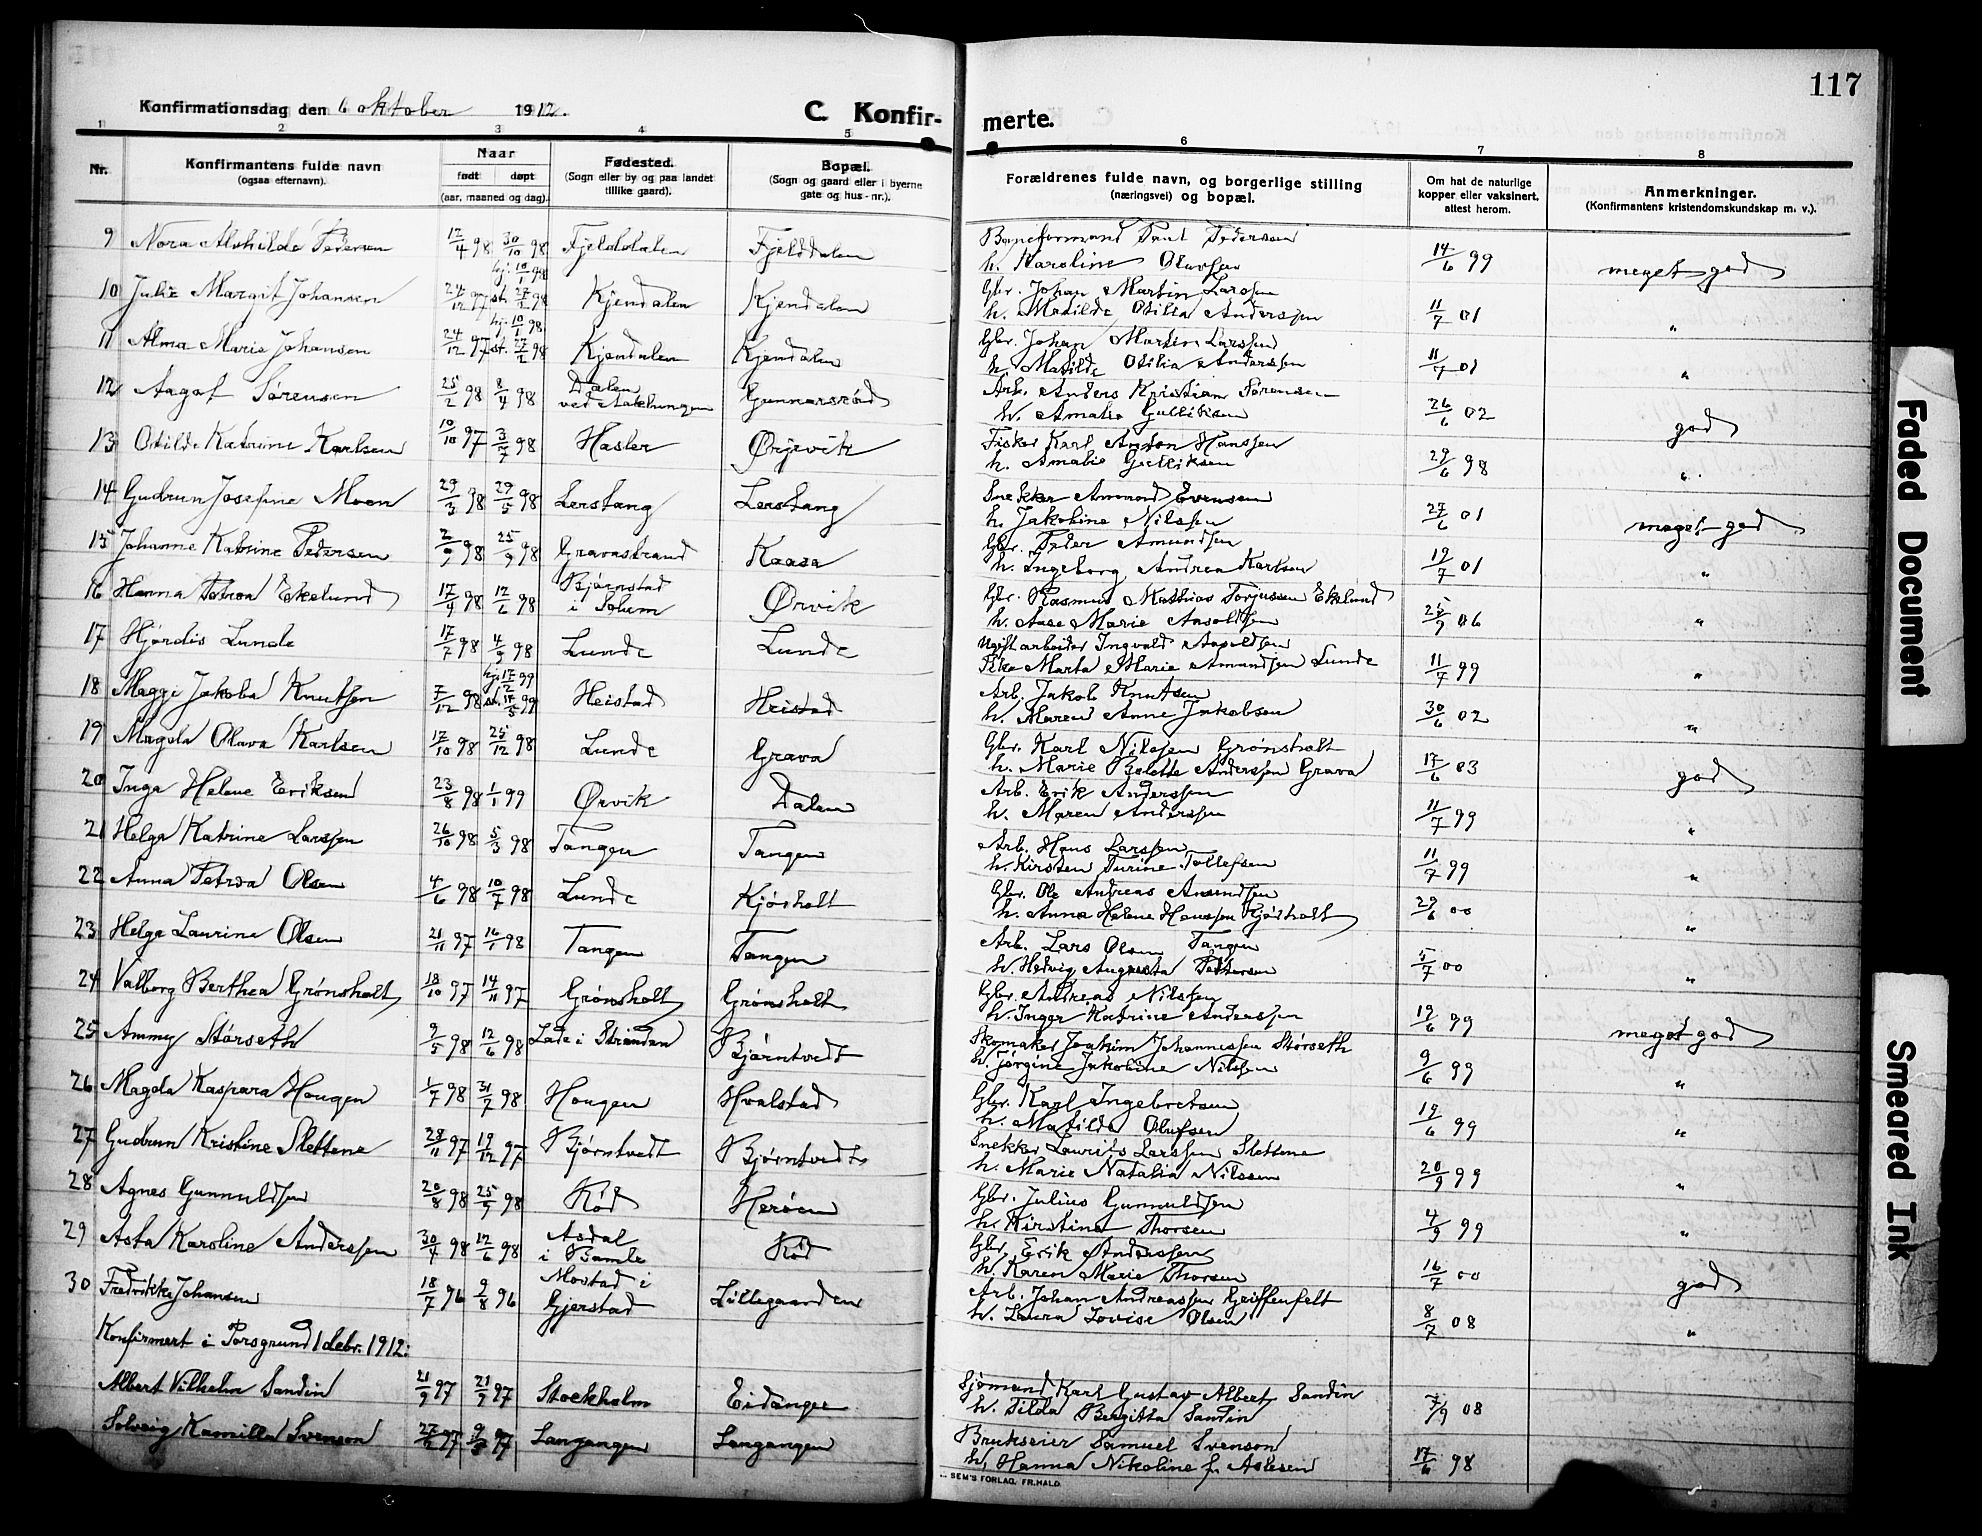 117
Konfirmationsdag den 6 oktober 1912.
C. Konfir-
merte.
1 2 3 4 5 6 7 8
Nr.
Konfirmantens fulde navn
(ogsaa efternavn).
Naar
født døpt
(aar, maaned og dag).
Fødested.
(Sogn eller by og paa landet
tillike gaard).
Bopæl.
(Sogn og gaard eller i byerne
gate og hus-nr.).
Forældrenes fulde navn, og borgerlige stilling
(næringsvei) og bopæl.
Om hat de naturlige
kopper eller vaksinert,
attest herom.
Anmerkninger.
(Konfirmantens kristendomskundskap m. v.).
9 Nora Alvhilde Pedersen 12/4 98 30/10 98 Fjelddalen Fjelddalen
Baneformand Paul Pedersen
h. Karoline Olavsen 14/6 99 meget god
10 Julie Margit Johansen 24/12 97 hj. 10/1 98 st. 27/2 98 Kjendalen Kjendalen
Gbr. Johan Martin Larssen
h. Matilde Otilia Anderssen 11/7 01 "
11 Alma Marie Johansen 24/12 97 hj. 10/1 98 st. 27/2 98 Kjendalen Kjendalen
Gbr. Johan Martin Larssen
h. Matilde Otilia Anderssen 11/7 01 "
12 Aagot Sørensen 25/2 98 8/4 98 Dalen
ved Aaklungen Gunnarsrød
Arb. Anders Kristian Sørensen
h. Amalie Gulliksen 26/6 02 god
13 Otilde Katrine Karlsen 10/10 97 3/7 98 Hasler Ørjevik
Fisker Karl Anton Hanssen
h. Amalie Gulliksen 29/6 98 "
14 Gudrun Josefine Moen 29/3 98 29/5 98 Lerstang Lerstang
Snekker Amund Evensen
h. Jakobine Nilssen 27/6 01 meget god
15 Johanne Katrine Pedersen 2/9 98 25/9 98 Gravastrand Kaasa
Gbr. Peder Amundsen
h. Ingeborg Andrea Karlsen 19/7 01 "
16 Hanna Petrea Ekelund 17/4 98 12/6 98 Bjørnstad
i Solum Ørvik
Gbr. Rasmus Mathias Torjussen Ekelund
h. Aase Marie Ansoltsen 25/9 06 "
17 Hjørdis Lunde 17/7 98 4/9 98 Lunde Lunde
Ugift arbeider Ingvald
Pike Marta Marie Amundsen Lunde 11/7 99 "
18 Maggi Jakoba Knutsen 7/12 98 hj. 17/2 99 st. 17/5 99 Heistad Heistad
Arb. Jakob Knutsen
h. Maren Anne Jakobsen 30/6 02 "
19 Magda Olava Karlsen 17/10 98 25/12 98 Lunde Grava
Gbr. Karl Nilssen Grønsholt
h. Marie Bolette Anderssen Grava 17/6 03 god
20 Inga Helene Eriksen 23/8 98 1/1 99 Ørvik Dalen
Arb. Erik Anderssen
h. Maren Anderssen 11/7 99 "
21 Helga Katrine Larssen 26/10 98 5/3 98 Tangen Tangen
Arb. Hans Larssen
h. Kirsten Turine Tollefsen 11/7 99 "
22 Anna Petrea Olsen 4/6 98 10/7 98 Lunde Kjørholt
Gbr. Ole Andreas Amundsen
h. Anna Helene Hanssen Kjørholt 29/6 00 "
23 Helga Laurine Olsen 21/11 97 16/1 98 Tangen Tangen
Arb. Lars Olsen Tangen
h. Hedvig Augusta Pettersen 5/7 00 "
24 Valborg Berthea Grønsholt 18/10 97 14/11 97 Grønsholt Grønsholt
Gbr. Andreas Nilssen
h. Inger Katrine Anderssen 19/6 99 meget god
25 Ammy Størseth 9/5 98 12/6 98 Lade i Strinden Bjørntvedt
Skomaker Joakim Johannessen Størseth
h. Jørgine Jakobine Nilssen 9/6 99 "
26 Magda Kaspara Hougen 1/7 98 31/7 98 Hougen Hvalstad
Gbr. Karl Ingebretsen
h. Matilde Olufsen 19/6 99 "
27 Gudrun Kristine Slettene 28/11 97 19/12 97 Bjørntvedt Bjørntvedt
Snekker Laurits Larssen Slettene
h. Marie Natalia Nilssen 20/9 99 "
28 Agnes Gunnuldsen 20/8 98 25/9 98 Rød Herøen
Gbr. Julius Gunnuldsen
h. Kirstine Thorsen 4/9 99 "
29 Asta Karoline Anderssen 30/4 98 12/6 98 Asdal
i Bamle Rød
Gbr. Erik Anderssen
h. Karen Marie Thorsen 16/7 00 god
30 Fredrikke Johansen 18/7 96 9/8 96 Mostad i
Gjerstad Lillegaarden
Arb. Johan Andreassen Griffenfelt
h. Laura Lovise Olsen 8/7 08 "
Konfirmert i Porsgrund 1 debr. 1912:
Albert Vilhelm Sandin 21/9 97 21/9 97 Stockholm Eidanger
Sjømand Karl Gustav Albert Sandin
h. Tilda Bergitta Sandin 7/9 08
Solveig Kamilla Svenson 97 97 Langangen Langangen
Brukseier Samuel Svenson
h. Hanna Nikoline f. Aslesen 17/6 98
SEM'S FORLAG, FR.HALD.
Faded Document
Smeared Ink